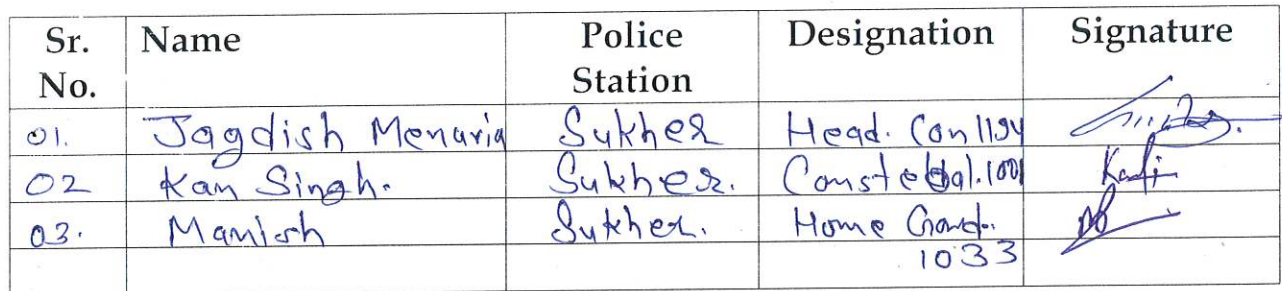 Sr. No. Name Police Station Designation Signature
01. Jagdish Menaria Sukher Head. Con 1194
02 Kan Singh. Sukher. Constebal. 1001
03. Manish Sukher. Home Gard.
1033